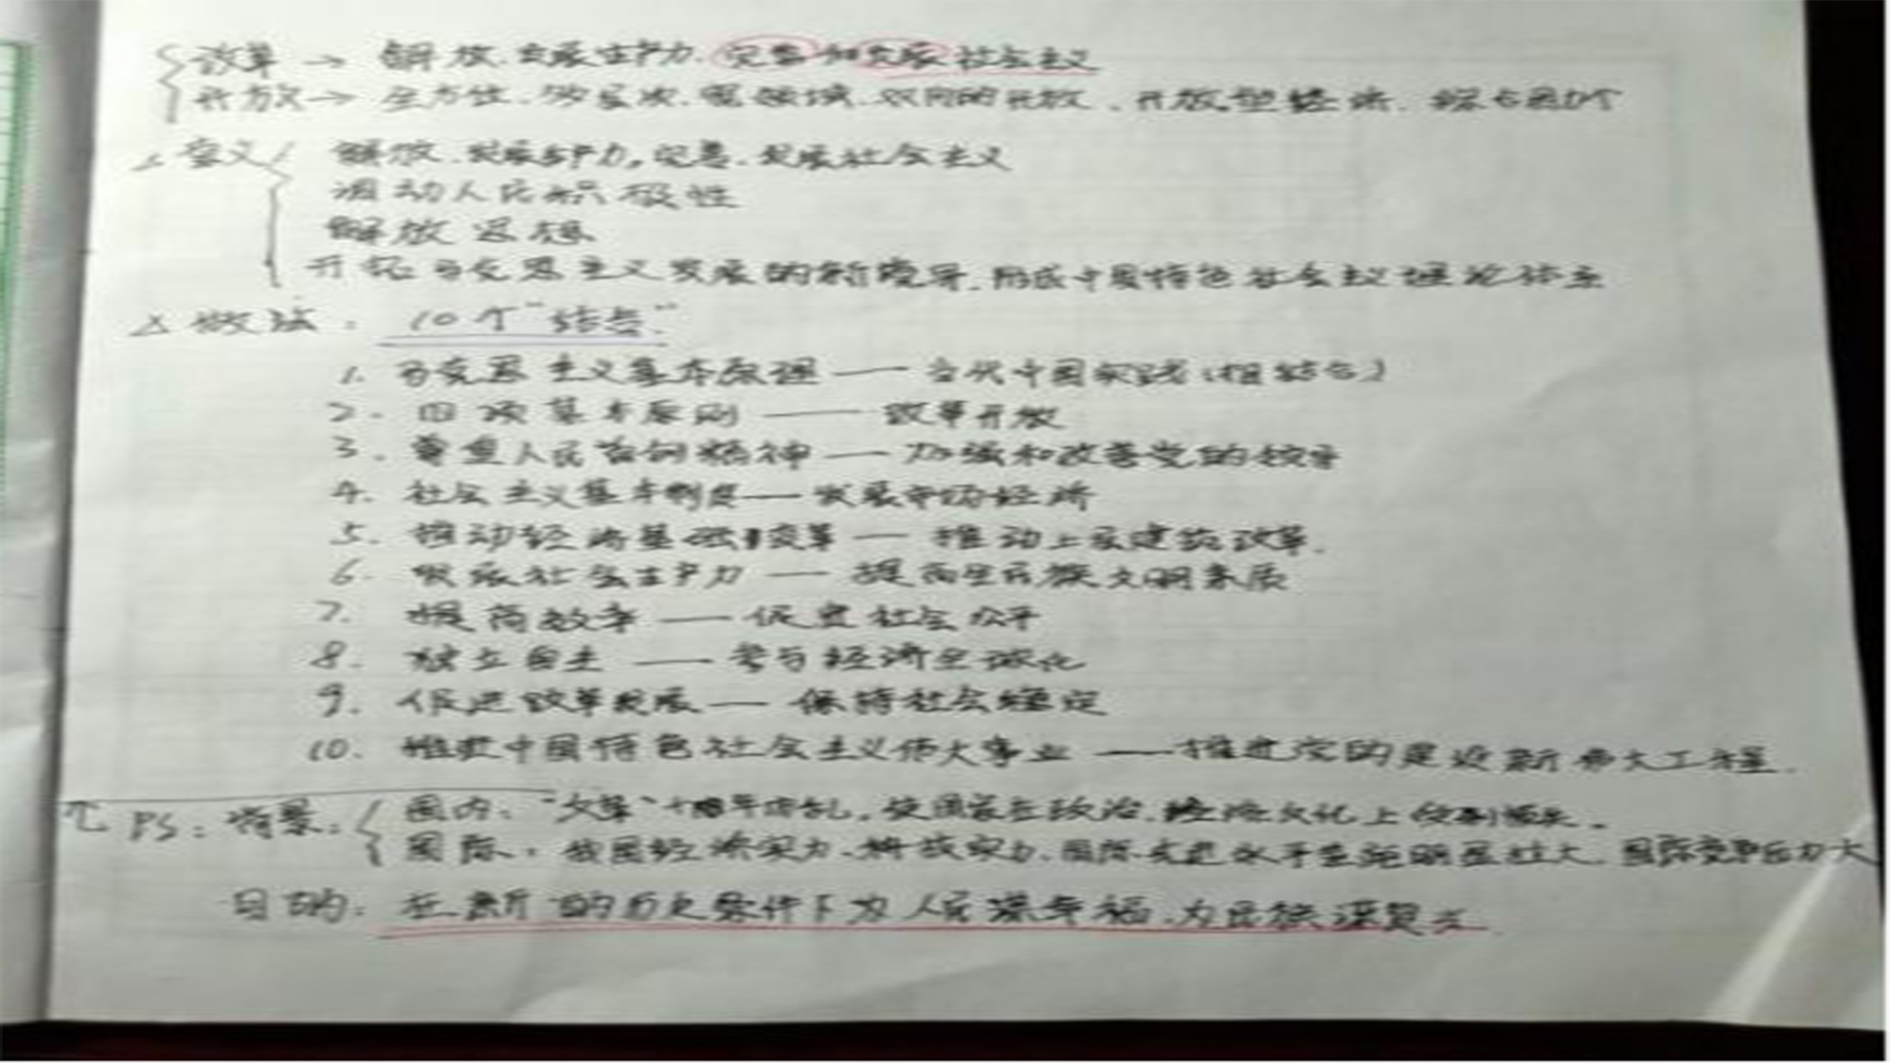 改革 → 解放.发展生产力.完善和发展社会主义
开放 → 全方位.多层次.宽领域.双向的开放.开放型经济.
意义 解放.发展生产力,完善.发展社会主义
调动人民积极性
解放思想
开拓马克思主义发展的新境界.形成中国特色社会主义理论体系
做法: 10个"结合"
1. 马克思主义基本原理 — 当代中国实践(相结合)
2. 四项基本原则 — 改革开放
3. 尊重人民首创精神 — 加强和改善党的领导
4. 社会主义基本制度 — 发展市场经济
5. 推动经济基础变革 — 推动上层建筑改革.
6. 发展社会生产力 — 提高全民族文明素质
7. 提高效率 — 促进社会公平
8. 独立自主 — 参与经济全球化
9. 促进改革发展 — 保持社会稳定
10. 推进中国特色社会主义伟大事业 — 推进党的建设新伟大工程.
PS: 背景: 国内: "文革"十年内乱,使国家在政治.经济文化上受到损失.
国际: 我国经济实力.科技实力.国际先进水平差距明显拉大.国际竞争压力大
目的: 在新的历史条件下为人民谋幸福.为民族谋复兴